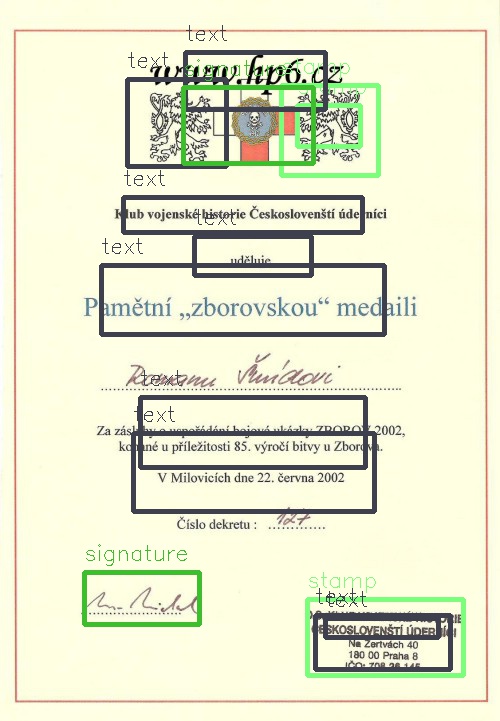 text
www.hpo.cz
text
signature
stamp
text
Klub vojenské historie Českoslovenští úderníci
text
uděluje
text
Pamětní „zborovskou“ medaili
Romanu Šmídovi
text
text
Za zásluhy o uspořádání bojové ukázky ZBOROV 2002,
konané u příležitosti 85. výročí bitvy u Zborova.
V Milovicích dne 22. června 2002
Číslo dekretu : 127
signature
stamp
text
text
KLUB VOJENSKÉ HISTORIE
ČESKOSLOVENŠTÍ ÚDERNÍCI
Na Žertvách 40
180 00 Praha 8
IČO: 708 26 145